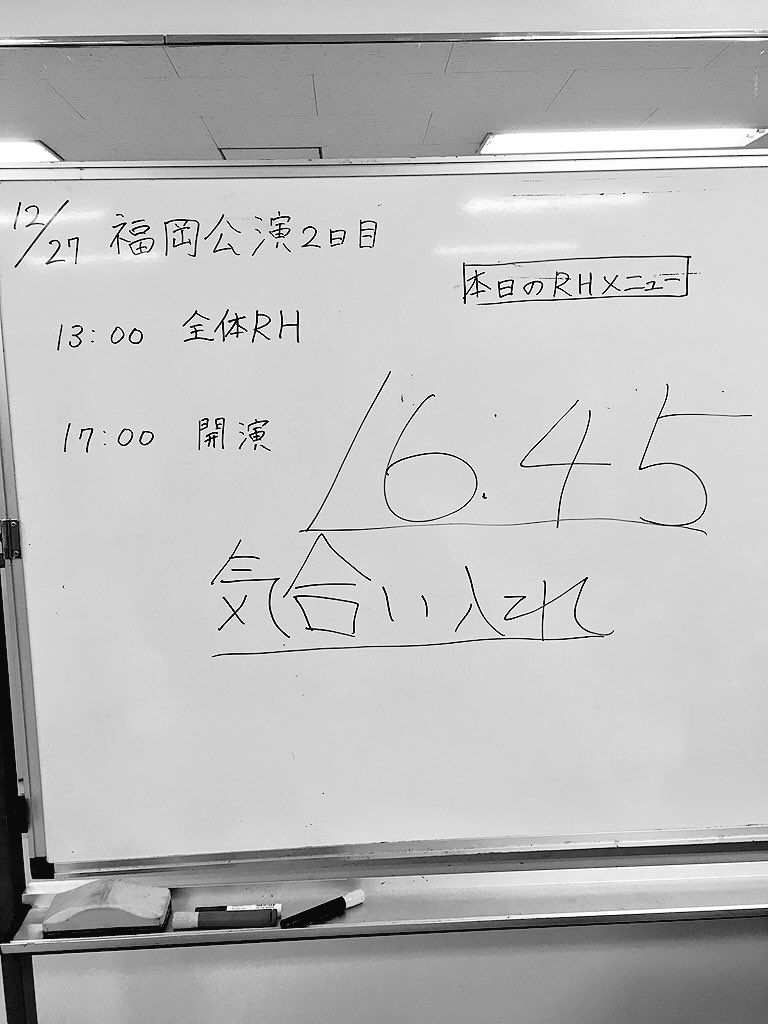 12/27 福岡公演2日目
本日のRHメニュー
13:00 全体RH
17:00 開演
16.45
気合い入れ